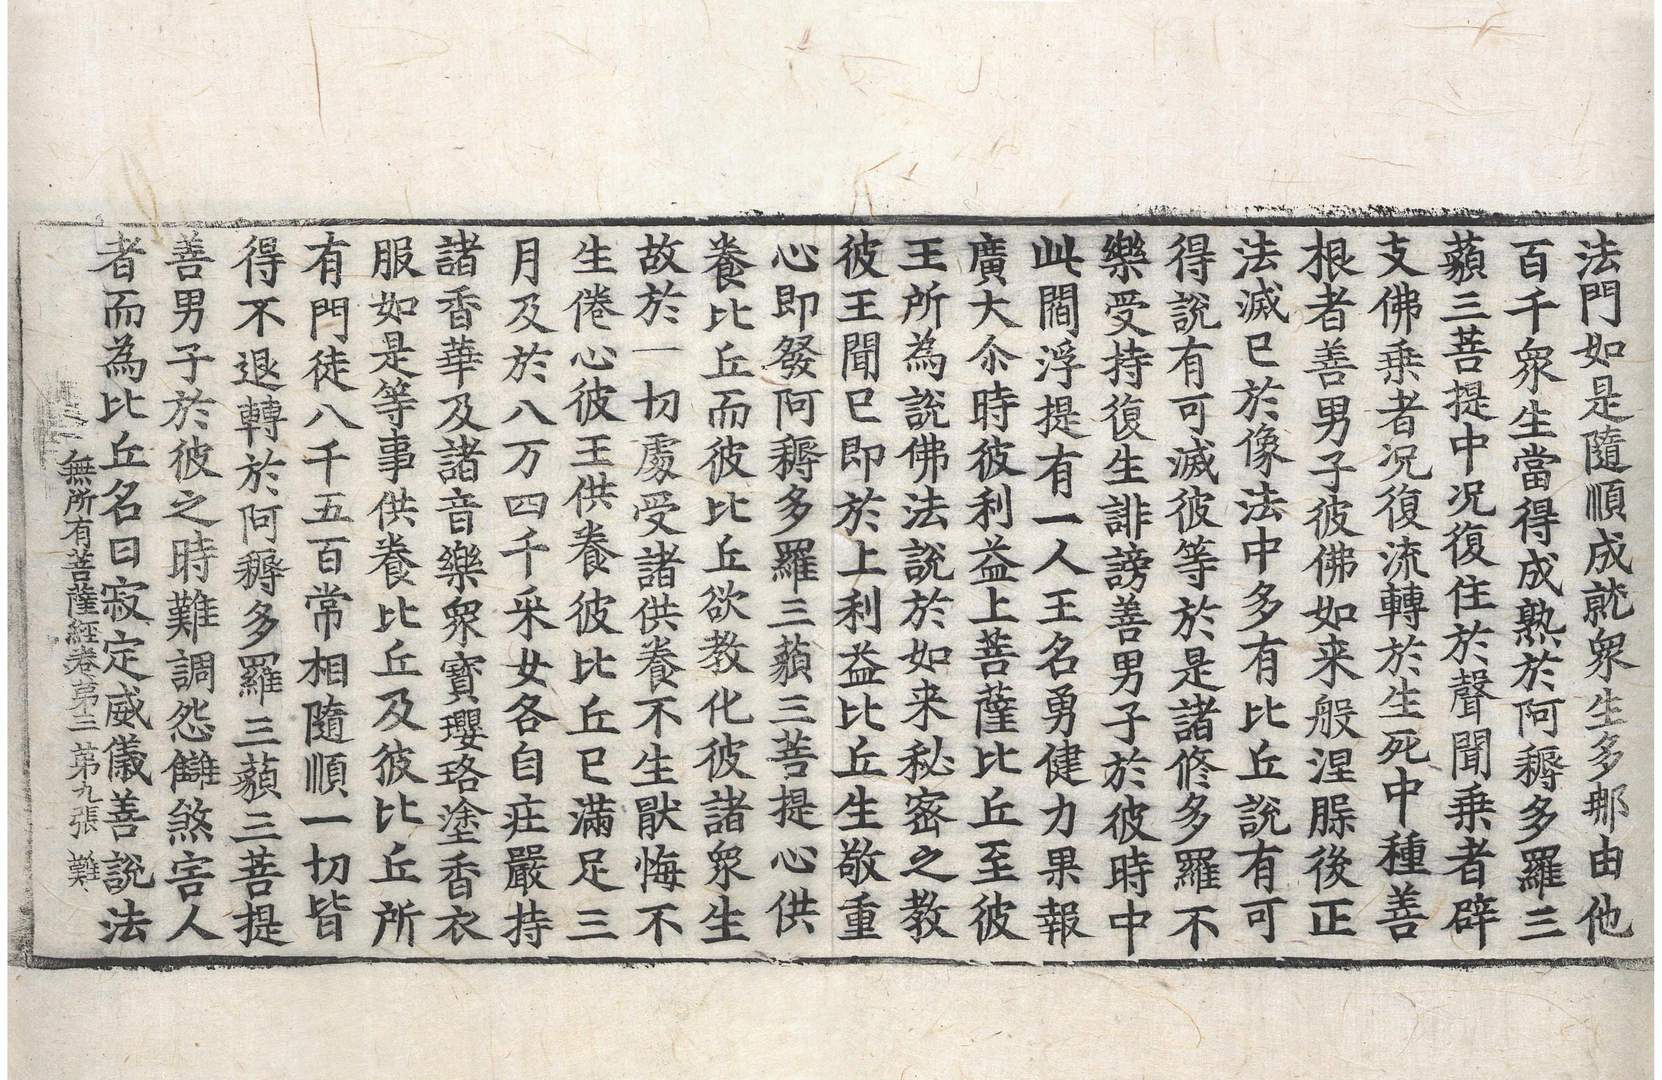 法門如是隨順成就衆生多那由他
百千衆生當得成熟於阿耨多羅三
藐三菩提中况復住於聲聞乗者辟
支佛乗者况復流轉於生死中種善
根者善男子彼佛如来般涅膝後正
法滅已於像法中多有比丘說有可
得說有可滅彼等於是諸修多羅不
樂受持復生誹謗善男子於彼時中
此閻浮提有一人王名勇健力果報
廣大尒時彼利益上菩薩比丘至彼
王所為說佛法說於如来秘密之教
彼王聞已即於上利益比丘生敬重
心即發阿耨多羅三藐三菩提心供
養比丘而彼比丘欲教化彼諸衆生
故於一切處受諸供養不生猒悔不
生倦心彼王供養彼比丘已滿足三
月及於八万四千采女各自莊嚴持
諸香華及諸音樂衆寶瓔珞塗香衣
服如是等事供養比丘及彼比丘所
有門徒八千五百常相隨順一切皆
得不退轉於阿耨多羅三藐三菩提
善男子於彼之時難調怨讎煞害人
者而為比丘名曰寂定威儀善說法
無所有菩薩經卷第三 第九張 難